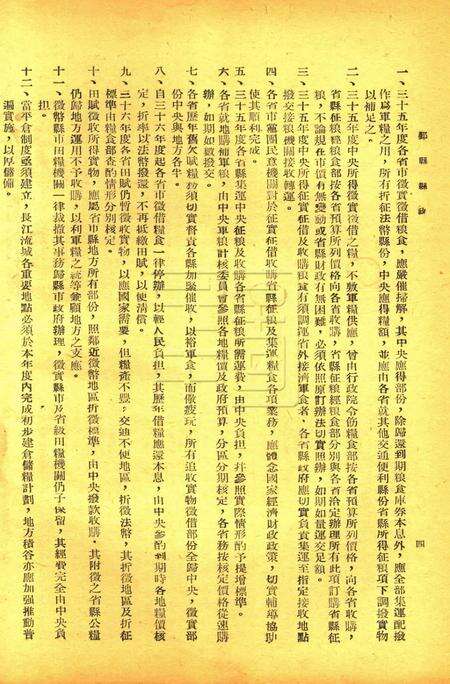 鄞縣縣政
四
一、三十五年度各省市徵實徵借粮食，應嚴催掃解，其中央應得部份，除歸還到期粮食庫券本息外，應全部集運配撥
作爲軍粮之用，所有折征法幣縣份，中央應得糧額，並應由各省就其他交通便利縣份省縣所得征粮項下調撥實物
以補足之。
二、三十五年度中央所得徵實徵借之糧，不敷軍糧供應，曾由行政院令飭糧食部按各省預算所列價格，向各省收購，
省縣征粮經粮食部按各省預算所列價格向各省收購，省縣征粮經粮食部分別與各省洽定辦理所有此項訂購省縣征
粮，不論現在市價有無變動或省縣財政有無困難，必須依照原訂辦法切實照辦，如期如量運交足額。
三、三十五年度中央所得征實征借及收購粮食有須調運省外接濟軍食者，各省縣政府應切實負責集運至指定接收地點
撥交接粮機關接收轉運。
四、各省市黨團民意機關對於征實征借收購省縣征粮及集運糧食各項業務，應體念國家經濟財政政策，切實輔導協助
使其順利完成。
五、三十五年度各省縣集運中央征粮及收購各省縣征粮所需運費，由中央負担，幷參照實際情形酌予提增標準。
六、各省就地購補軍粮，由中央軍粮計核委員會參照各地糧價及政府預算，分區分期核定，各省務按核定價格從速購
辦，如期如數撥交。
七、各省歷年舊欠賦糧務須切實督責各縣加緊催收，以裕軍食，而儆疲玩，所有追收實物徵借部份全歸中央，徵實部
份中央與地方各半。
八、自三十六年度起各省市徵借糧食一律停辦，以輕人民負担，其歷年借糧應還本息，由中央參酌到期時各地糧價核
定，折率以法幣撥還，不再抵繳田賦，以便清償。
九、三十六年度各省田賦仍暫徵收實物，以應國家需要，但糧產不豐，交通不便地區，折徵法幣，其折徵地區及折征
標準由糧食部查酌情形分別核定。
十、田賦徵收所得實物，應屬省市縣地方所有部份，照鄰近徵幣地區折徵標準，由中央撥款收購。其附徵之省縣公糧
仍歸地方運用不予收購，以利軍糧之統籌兼顧地方之支應。
十一、徵幣縣市田糧機關一律裁撤其事務歸縣市政府辦理，徵實縣市及省級田糧機關仍予保留，其經費完全由中央負
担。
十二、常平倉制度亟須建立，長江流域各重要地點必須於本年度內完成初步建倉儲糧計劃，地方積谷亦應加强推動普
遍實施，以厚儲備。